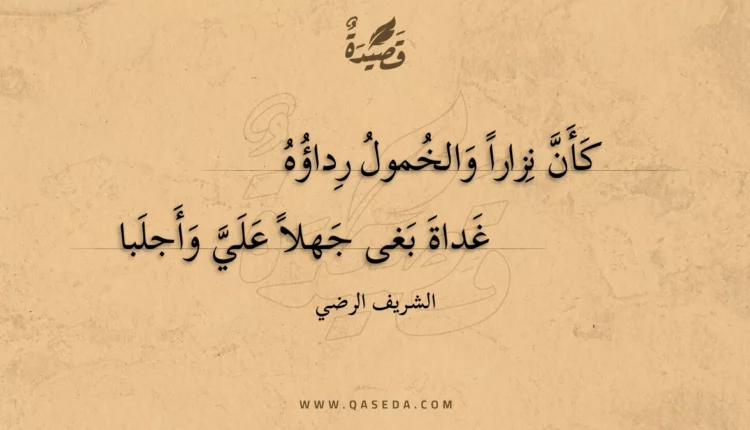 قَصِيْدَةٌ
كَأَنَّ نِزاراً وَالخُمولُ رِداؤُهُ
غَداةَ بَغى جَهلاً عَلَيَّ وَأَجلَبا
الشريف الرضي
WWW.QASEDA.COM